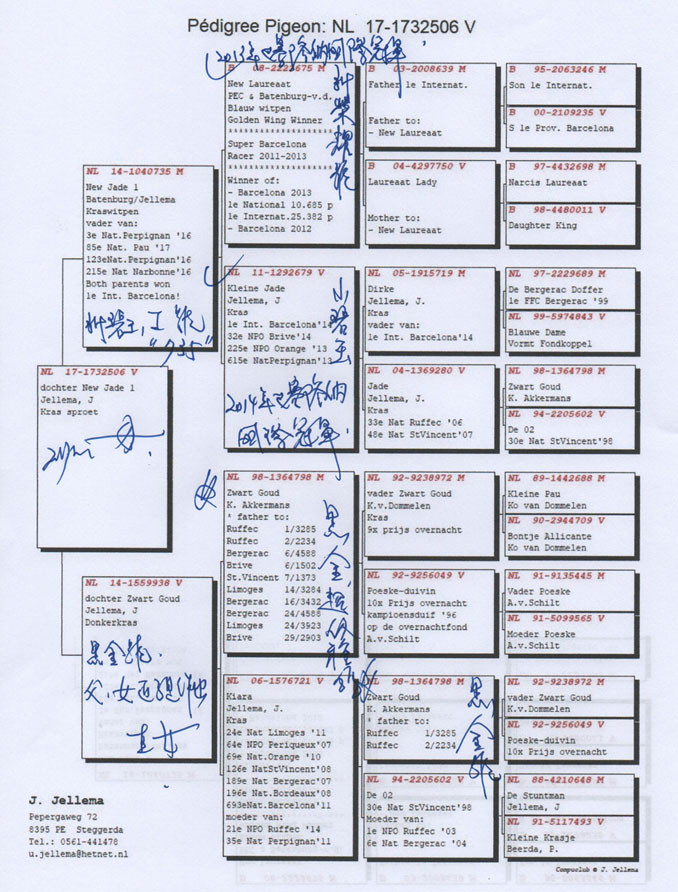 Pédigree Pigeon: NL 17-1732506 V
NL 17-1732506 V
dochter New Jade 1
Jellema, J
Kras sproet
NL 14-1040735 M
New Jade 1
Batenburg/Jellema
Kraswitpen
vader van:
3e Nat.Perpignan '16
85e Nat. Pau '17
123eNat.Perpignan'16
215e Nat Narbonne'16
Both parents won
1e Int. Barcelona!
"735"
NL 14-1559938 V
dochter Zwart Goud
Jellema, J
Donkerkras
黑金號.
父、女
直女
B 08-2223675 M
New Laureaat
PEC & Batenburg-v.d.
Blauw witpen
Golden Wing Winner
********************
Super Barcelona
Racer 2011-2013
********************
Winner of:
- Barcelona 2013
1e National 10.685 p
1e Internat.25.382 p
- Barcelona 2012
2013年巴塞隆納國際冠軍
NL 11-1292679 V
Kleine Jade
Jellema, J
Kras
1e Int. Barcelona'14
32e NPO Brive'14
225e NPO Orange '13
615e NatPerpignan'13
小碧玉
2014年巴塞隆納
國際冠軍
NL 98-1364798 M
Zwart Goud
K. Akkermans
* father to:
Ruffec 1/3285
Ruffec 2/2234
Bergerac 6/4588
Brive 6/1502
St.Vincent 7/1373
Limoges 14/3284
Bergerac 16/3432
Bergerac 24/4588
Limoges 24/3923
Brive 29/2903
黑金
NL 06-1576721 V
Kiara
Jellema, J.
Kras
24e Nat Limoges '11
64e NPO Periqueux'07
69e Nat.Orange '10
126e NatStVincent'08
189e Nat Bergerac'07
196e Nat.Bordeaux'08
693eNat.Barcelona'11
moeder van:
21e NPO Ruffec '14
35e Nat Perpignan'11
B 03-2008639 M
Father le Internat.
Father to:
- New Laureaat
B 04-4297750 V
Laureaat Lady
Mother to:
- New Laureaat
NL 05-1915719 M
Dirke
Jellema, J.
Kras
vader van:
1e Int. Barcelona'14
NL 04-1369280 V
Jade
Jellema, J.
Kras
33e Nat Ruffec '06
48e Nat StVincent'07
NL 92-9238972 M
vader Zwart Goud
K.v.Dommelen
Kras
9x prijs overnacht
NL 92-9256049 V
Poeske-duivin
10x Prijs overnacht
kampioensduif '96
op de overnachtfond
A.v.Schilt
NL 98-1364798 M
Zwart Goud
K. Akkermans
* father to:
Ruffec 1/3285
Ruffec 2/2234
黑金號
NL 94-2205602 V
De 02
30e Nat StVincent'98
Moeder van:
1e NPO Ruffec '03
6e Nat Bergerac '04
B 95-2063246 M
Son le Internat.
B 00-2109235 V
S le Prov. Barcelona
B 97-4432698 M
Narcis Laureaat
B 98-4480011 V
Daughter King
NL 97-2229689 M
De Bergerac Doffer
1e FFC Bergerac '99
NL 99-5974843 V
Blauwe Dame
Vormt Fondkoppel
NL 98-1364798 M
Zwart Goud
K. Akkermans
NL 94-2205602 V
De 02
30e Nat StVincent'98
NL 89-1442688 M
Kleine Pau
Ko van Dommelen
NL 90-2944709 V
Bontje Allicante
Ko van Dommelen
NL 91-9135445 M
Vader Poeske
A.v.Schilt
NL 91-5099565 V
Moeder Poeske
A.v.Schilt
NL 92-9238972 M
vader Zwart Goud
K.v.Dommelen
NL 92-9256049 V
Poeske-duivin
10x Prijs overnacht
NL 88-4210648 M
De Stuntman
Jellema, J
NL 91-5117493 V
Kleine Krasje
Beerda, P.
J. Jellema
Pepergaweg 72
8395 PE Steggerda
Tel.: 0561-441478
u.jellema@hetnet.nl
Compuclub © J. Jellema